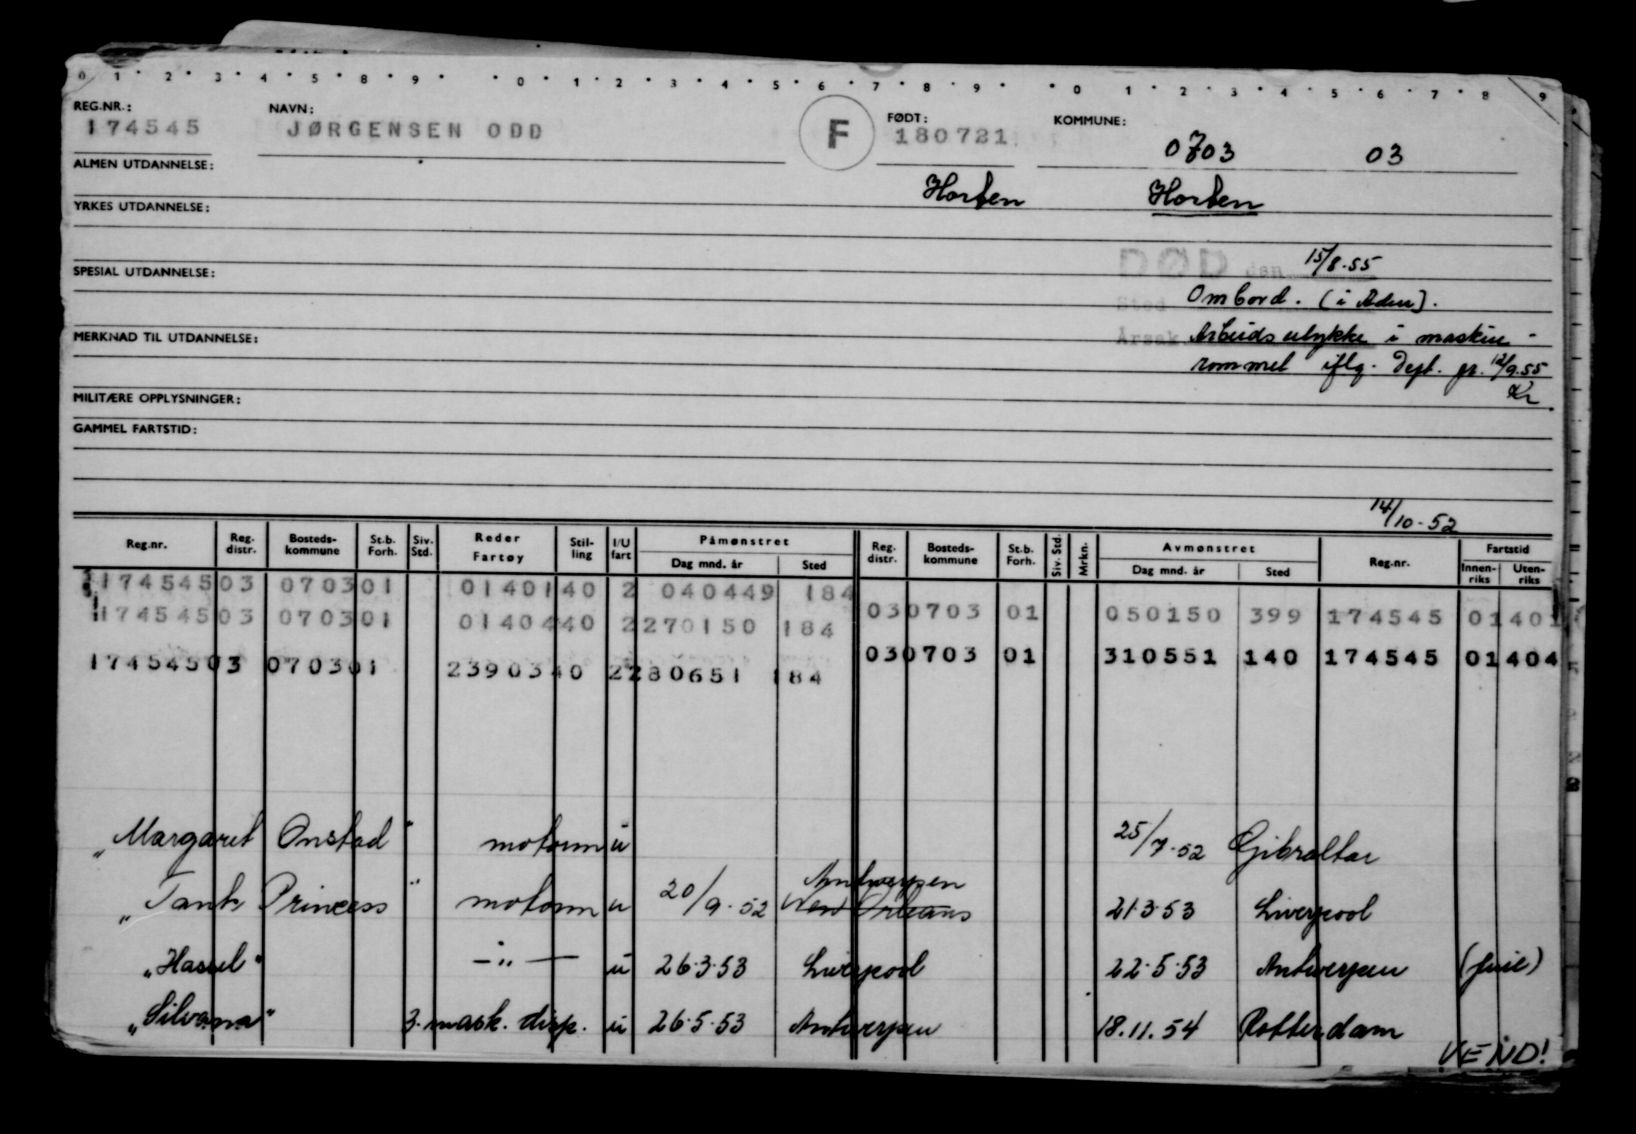 0 1 2 3 4 5 8 9 0 1 2 3 4 5 6 7 8 9 0 1 2 3 4 5 6 7 8 9
REG.NR.: NAVN: FØDT: KOMMUNE:
174545 JØRGENSEN ODD F 180721 0703 03
ALMEN UTDANNELSE:
Horten Horten
YRKES UTDANNELSE:
DØD den 15/8-55
SPESIAL UTDANNELSE:
Sted Ombord. (i Aden).
MERKNAD TIL UTDANNELSE: Årsak Arbeidsulykke i maskin-
rommet iflg. Dept. pr. 12/9.55
Kr.
MILITÆRE OPPLYSNINGER:
GAMMEL FARTSTID:
14/10-52
Reg.nr. Reg. distr. Bosteds-kommune St.b. Forh. Siv. Std. Reder Fartøy Stil-ling I/U fart Påmønstret Dag mnd. år Sted Reg. distr. Bosteds-kommune St.b. Forh. Siv. Std. Mrkn. Avmønstret Dag mnd. år Sted Reg.nr. Fartstid Innen-riks Uten-riks
174545 03 0703 01 01401 40 2 040449 184
03 0703 01 050150 399 174545 01 401
174545 03 0703 01 01404 40 2 270150 184
03 0703 01 310551 140 174545 01 404
174545 03 0703 01 23903 40 2 280651 184
"Margaret Onstad" motorm u 25/7-52 Gibraltar
"Tank Princess" motorm u 20/9-52 Antwerpen New Orleans 21·3·53 Liverpool
"Hassel" -"- u 26·3·53 Liverpool 22·5·53 Antwerpen
"Silvana" 3. mask. disp. u 26·5·53 Antwerpen 18.11.54 Rotterdam
VEND!